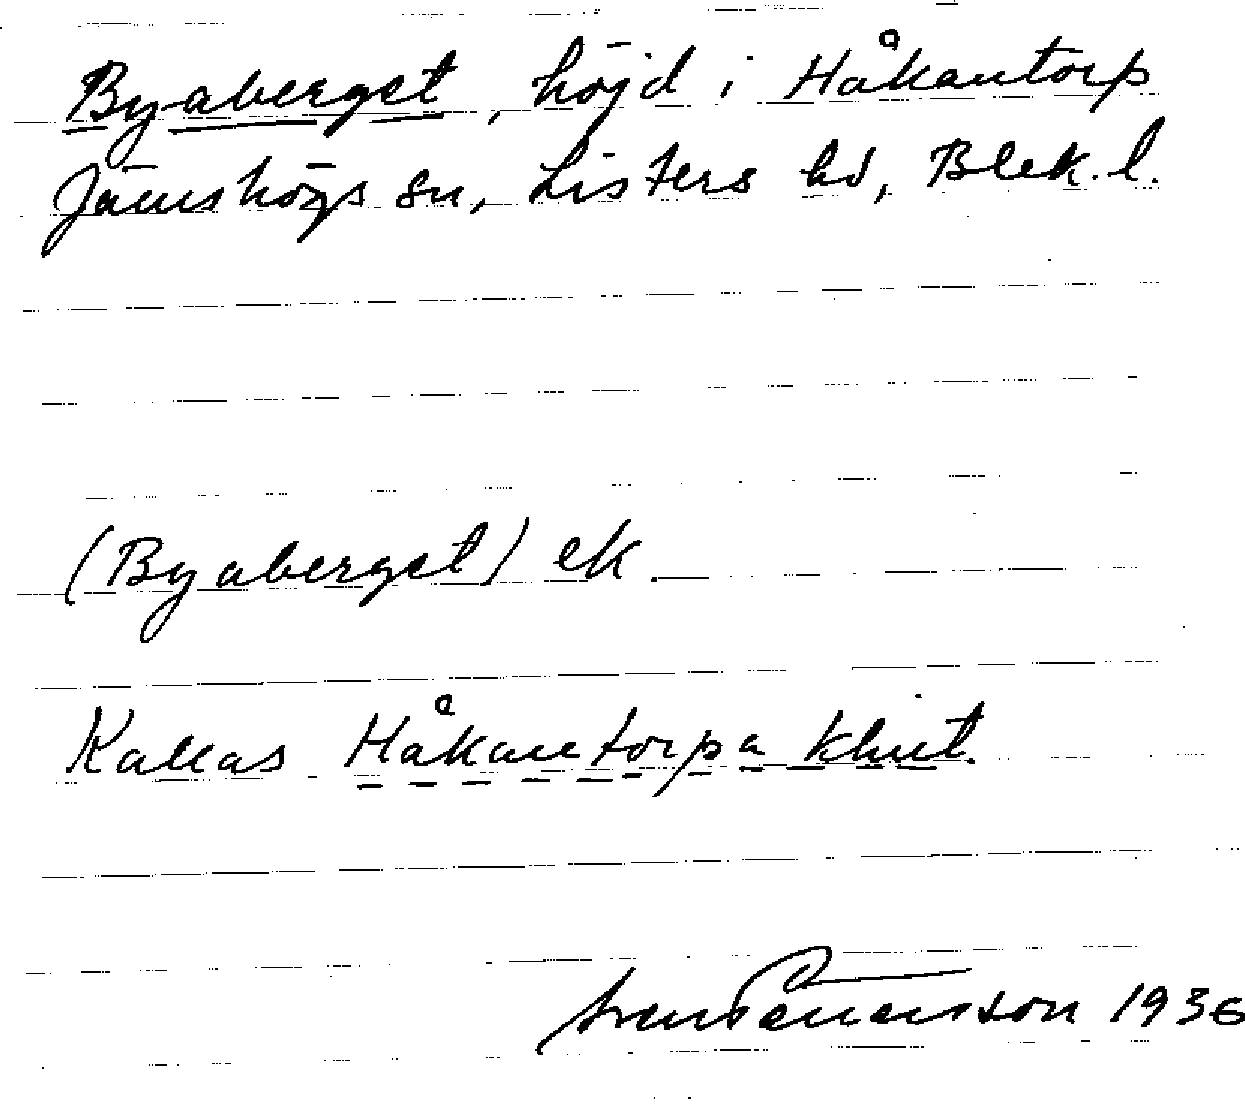 Byaberget, höjd i Håkantorp
Jämshögs sn, Listers hd, Blek. l.
(Byaberget) ek.
Kallas Håkantorpa klint.
Sven 1936